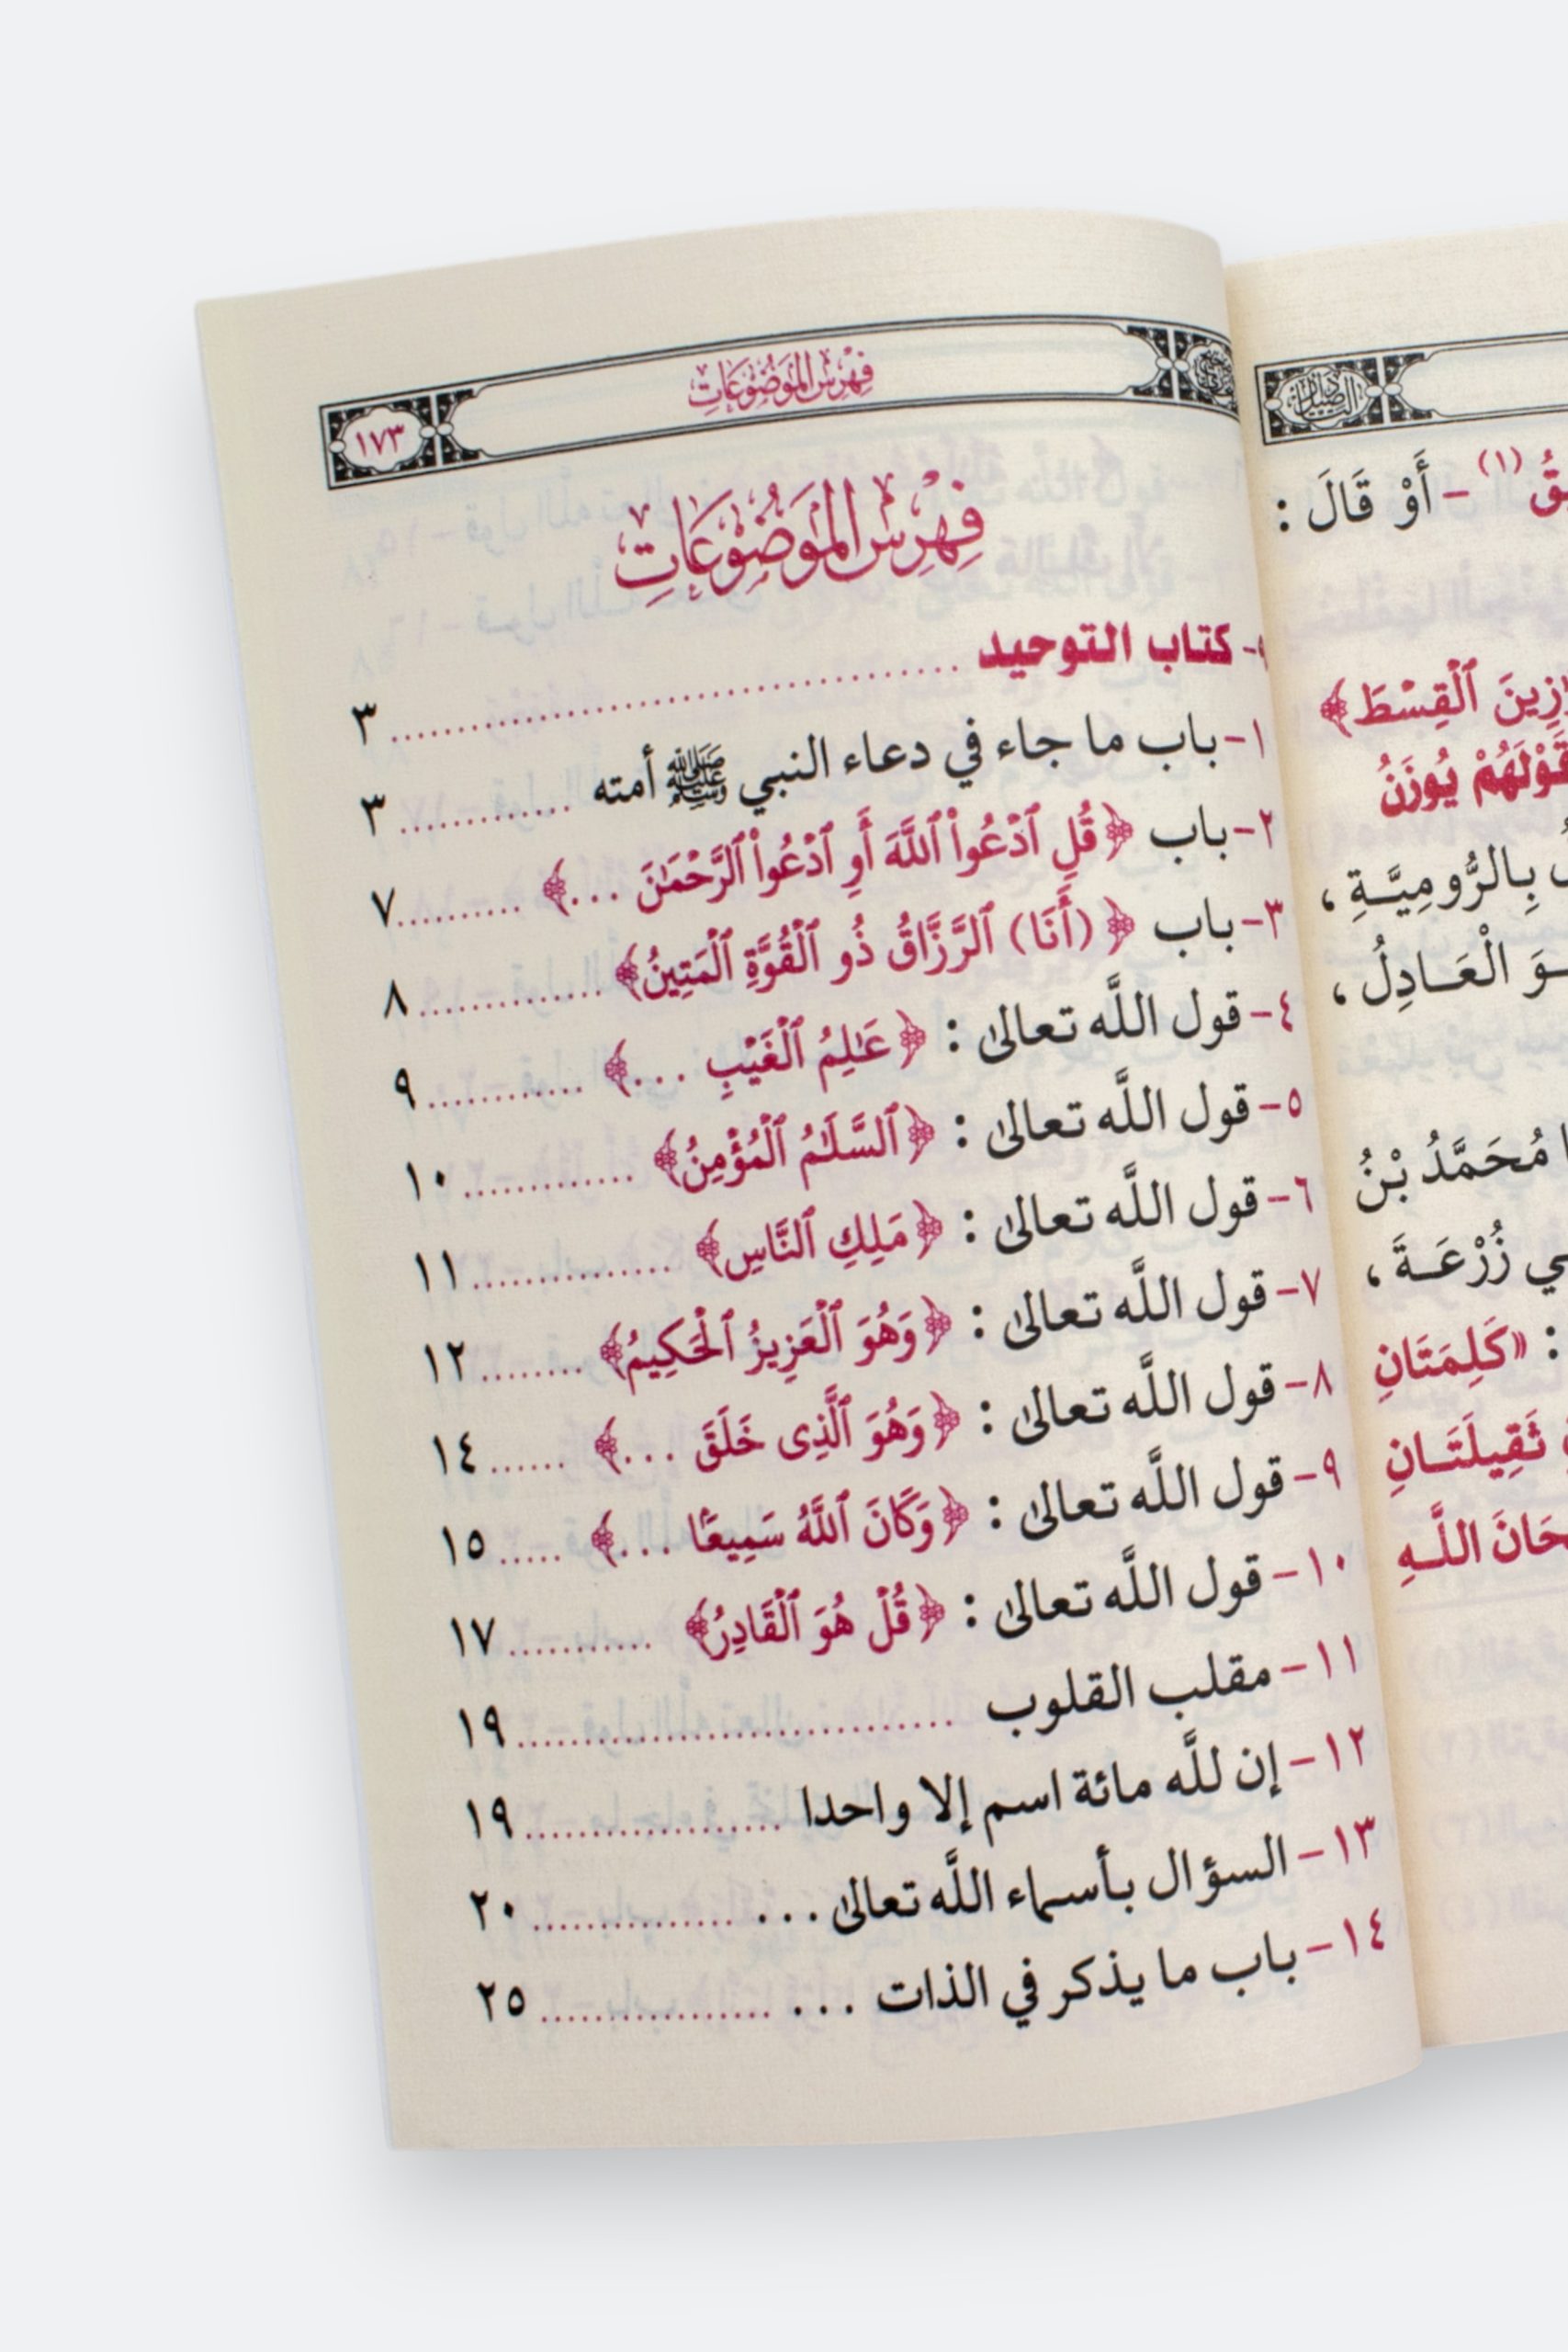 ـقُ (١) - أَوْ قَالَ :
ٱلْقِسْطَ﴾
يُوزَنُ
بِالرُّومِيَّـةِ ،
الْعَـادِلُ ،
مُحَمَّدُ بْنُ
زُرْعَـةَ ،
: «كَلِمَتَانِ
ثَقِيلَتَـانِ
اللَّـهِ
فهرس الموضوعات
١٧٣
فهرس الموضوعات
- كتاب التوحيد .......... ٣
١- باب ما جاء في دعاء النبي ﷺ أمته .......... ٣
٢- باب ﴿قُلِ ٱدْعُوا۟ ٱللَّهَ أَوِ ٱدْعُوا۟ ٱلرَّحْمَـٰنَ ...﴾ .......... ٧
٣- باب ﴿(أَنَا) ٱلرَّزَّاقُ ذُو ٱلْقُوَّةِ ٱلْمَتِينُ﴾ .......... ٨
٤- قول اللَّه تعالىٰ : ﴿عَـٰلِمُ ٱلْغَيْبِ ...﴾ .......... ٩
٥- قول اللَّه تعالىٰ : ﴿ٱلسَّلَـٰمُ ٱلْمُؤْمِنُ﴾ .......... ١٠
٦- قول اللَّه تعالىٰ : ﴿مَلِكِ ٱلنَّاسِ﴾ .......... ١١
٧- قول اللَّه تعالىٰ : ﴿وَهُوَ ٱلْعَزِيزُ ٱلْحَكِيمُ﴾ .......... ١٢
٨- قول اللَّه تعالىٰ : ﴿وَهُوَ ٱلَّذِى خَلَقَ ...﴾ ...... ١٤
٩- قول اللَّه تعالىٰ : ﴿وَكَانَ ٱللَّهُ سَمِيعًۢا ...﴾ ..... ١٥
١٠- قول اللَّه تعالىٰ : ﴿قُلْ هُوَ ٱلْقَادِرُ﴾ .......... ١٧
١١- مقلب القلوب .......... ١٩
١٢- إن للَّه مائة اسم إلا واحدا .......... ١٩
١٣- السؤال بأسماء اللَّه تعالىٰ ... .......... ٢٠
١٤- باب ما يذكر في الذات ... .......... ٢٥